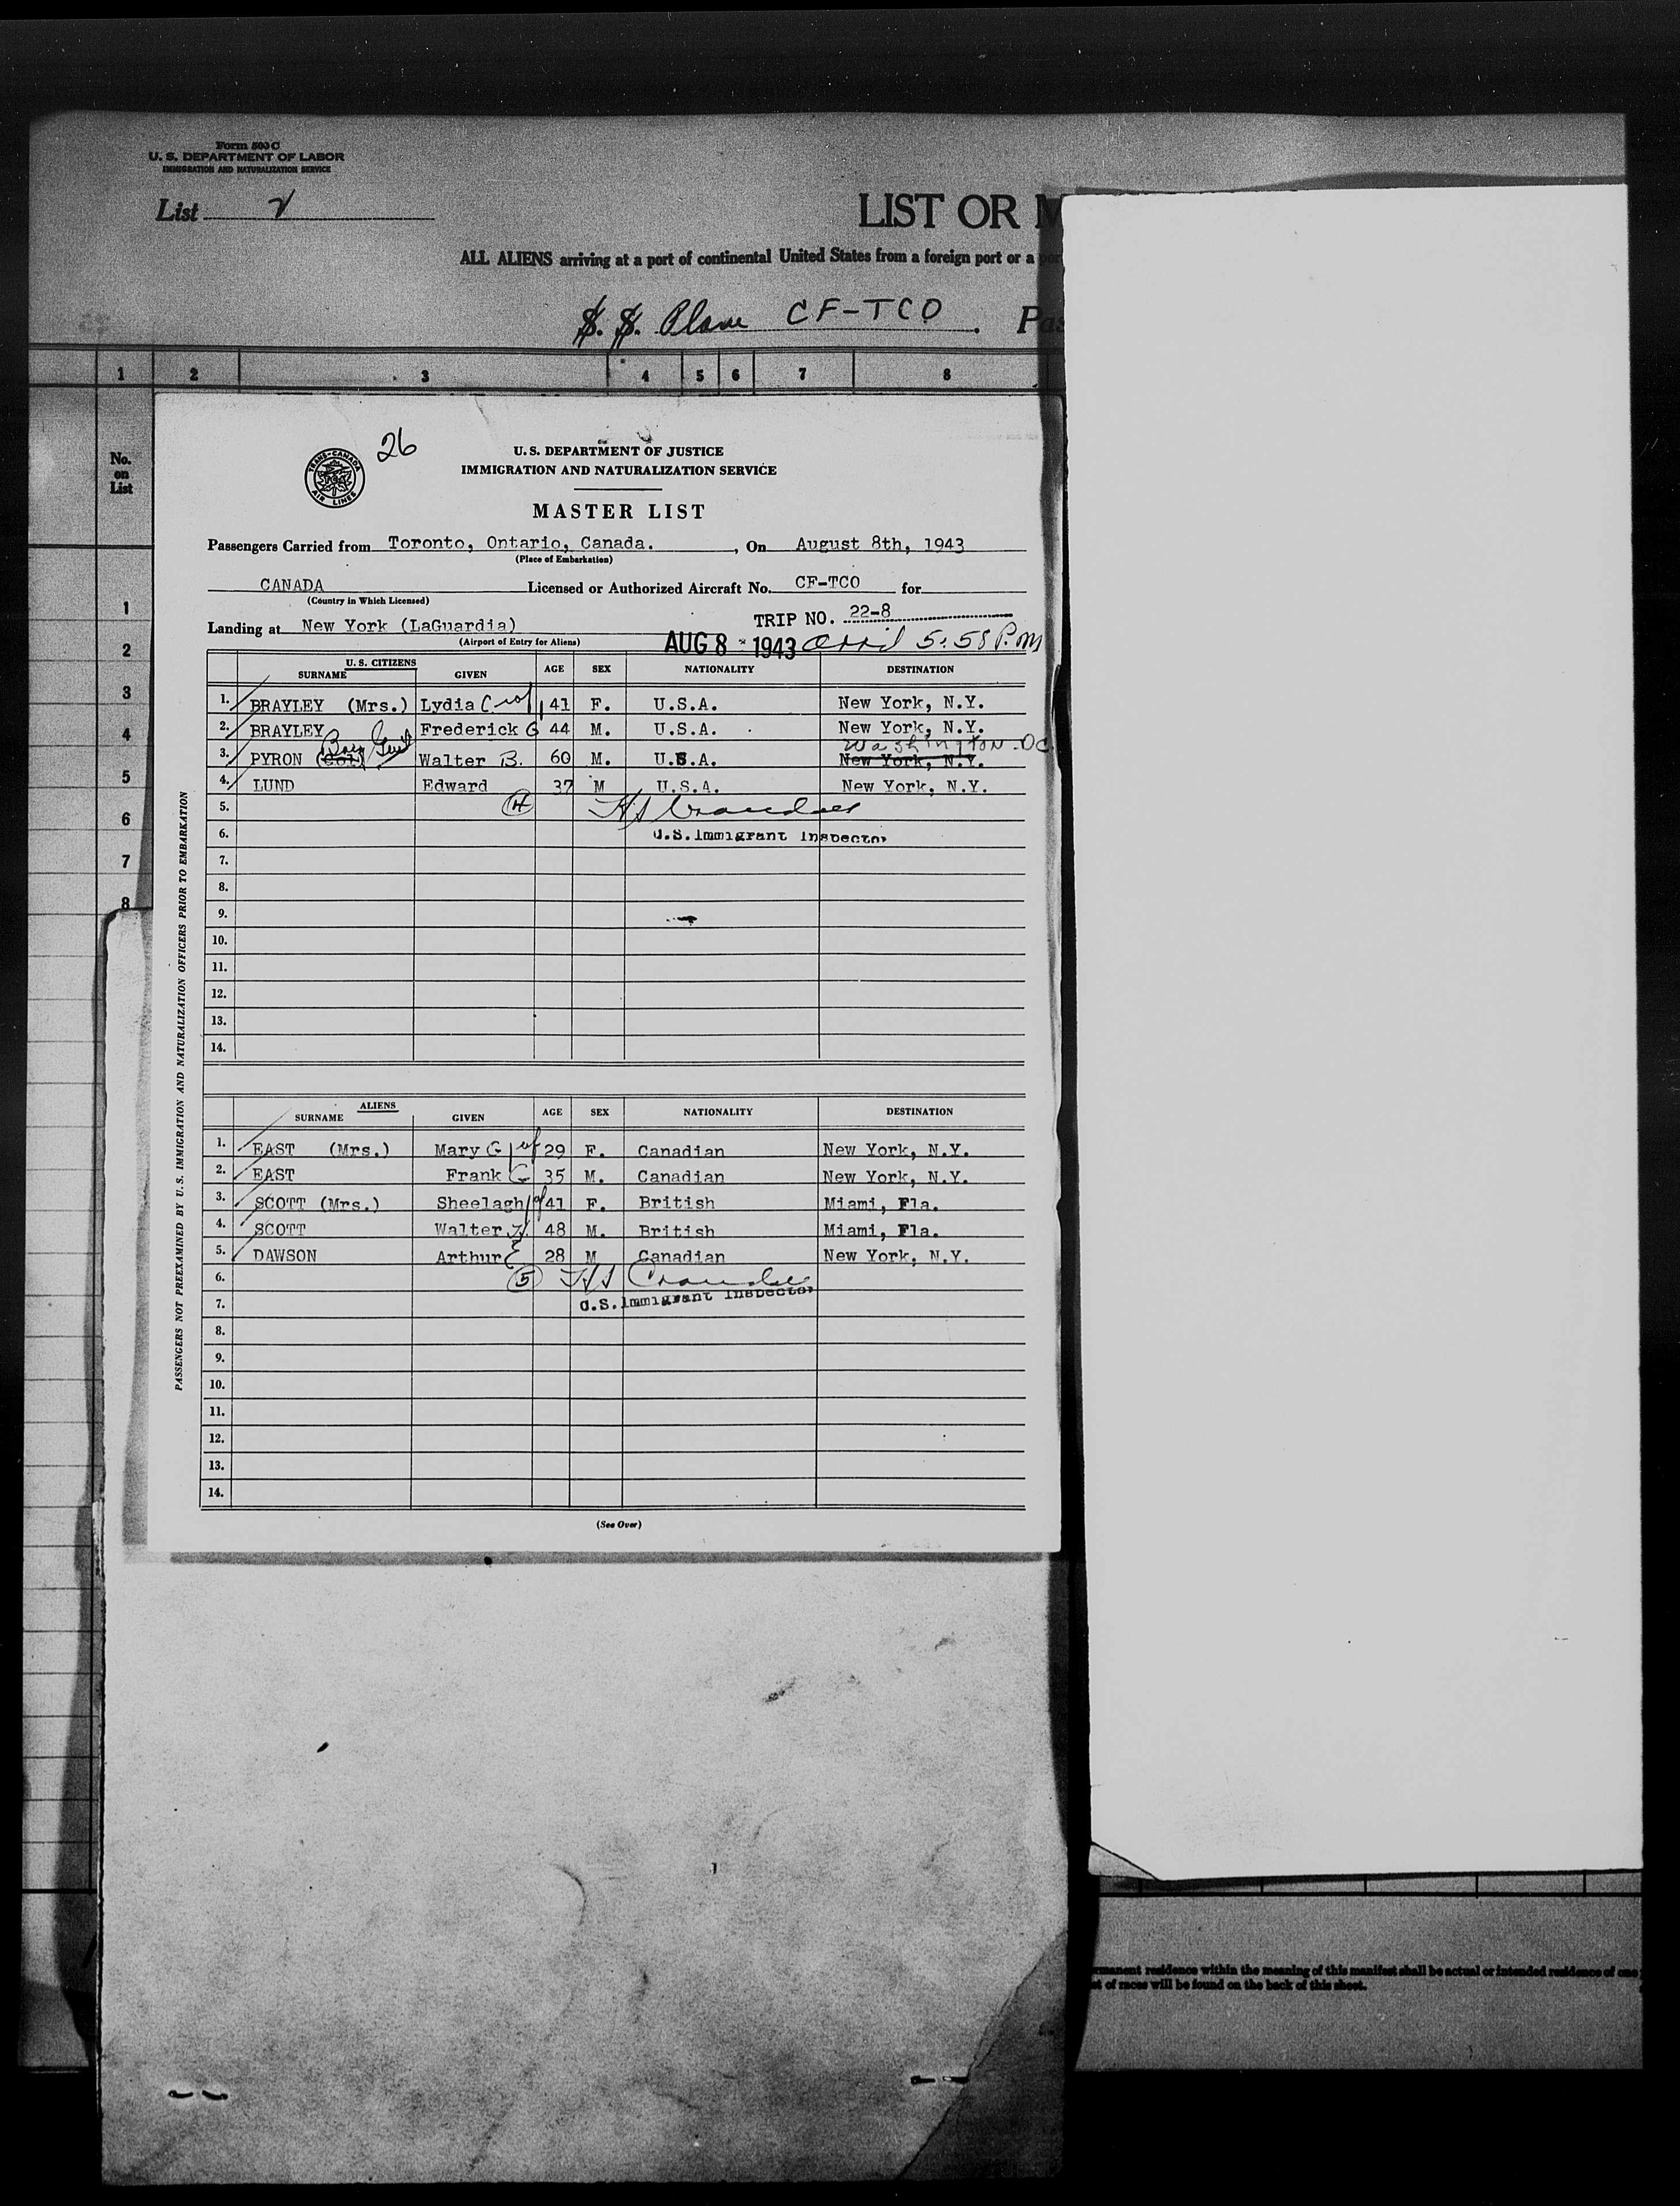 Form 500 C
U. S. DEPARTMENT OF LABOR
IMMIGRATION AND NATURALIZATION SERVICE
List
LIST OR M
ALL ALIENS arriving at a port of continental United States from a foreign port or a por
S. S. Plane CF-TCO . Pas
1 2 3 4 5 6 7 8
No. on List
1
2
3
4
5
6
7
8
TRANS-CANADA AIR LINES
26
U. S. DEPARTMENT OF JUSTICE
IMMIGRATION AND NATURALIZATION SERVICE
MASTER LIST
Passengers Carried from Toronto, Ontario, Canada. , On August 8th, 1943
(Place of Embarkation)
CANADA Licensed or Authorized Aircraft No. CF-TCO for
(Country in Which Licensed)
TRIP NO. 22-8
Landing at New York (LaGuardia)
(Airport of Entry for Aliens)
AUG 8 - 1943 5:58 P.M
U. S. CITIZENS
SURNAME GIVEN AGE SEX NATIONALITY DESTINATION
1. BRAYLEY (Mrs.) Lydia C 41 F. U.S.A. New York, N.Y.
2. BRAYLEY Frederick G 44 M. U.S.A. New York, N.Y.
Washington-DC
3. PYRON (Col) Walter B. 60 M. U.S.A. New York, N.Y.
4. LUND Edward 37 M U.S.A. New York, N.Y.
5. 4
6. U.S. Immigrant Inspector
7.
8.
9.
10.
11.
12.
13.
14.
ALIENS
SURNAME GIVEN AGE SEX NATIONALITY DESTINATION
1. EAST (Mrs.) Mary G 29 F. Canadian New York, N.Y.
2. EAST Frank G 35 M. Canadian New York, N.Y.
3. SCOTT (Mrs.) Sheelagh 41 F. British Miami, Fla.
4. SCOTT Walter H. 48 M. British Miami, Fla.
5. DAWSON Arthur E 28 M Canadian New York, N.Y.
6. 5
7. U.S. Immigrant Inspector
8.
9.
10.
11.
12.
13.
14.
(See Over)
PASSENGERS NOT PREEXAMINED BY U.S. IMMIGRATION AND NATURALIZATION OFFICERS PRIOR TO EMBARKATION
rmanent residence within the meaning of this manifest shall be actual or intended residence of one
st of races will be found on the back of this sheet.